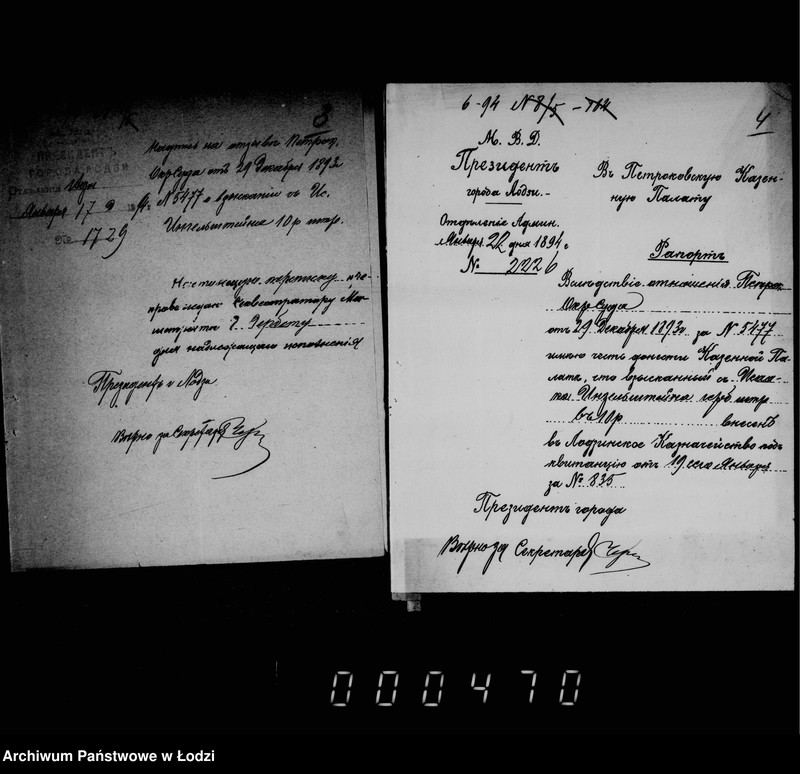 3
ПРЕЗИДЕНТЪ
ГОРОДА
Января 17 9
1729
Надпись на отзывъ Петрок.
Окр. Суда отъ 29 Декабря 1893
№ 5477 о взысканіи съ Ис.
Инзельштейна 10 р штр.
переписку
провождаю Секвестратору Ма-
гистрата Г. Гербсту
для надлежащаго исполненія
Президентъ г. Лодзи
Вѣрно за Секретаря
6-94 № 8/5 -
4
М. В. Д.
Президентъ
города Лодзи.
Отдѣленіе Админ.
Января 22 дня 1894 г.
№ 2226
Въ Петроковскую Казен-
ную Палату
Рапортъ
Вслѣдствіе отношенія Петрок
Окр Суда
отъ 29 Декабря 1893 г за № 5477
имѣю честь донести Казенной Па-
латѣ, что взысканный съ
Инзельштейна штр
въ 10 р внесенъ
въ Лодзинское Казначейство подъ
квитанцію отъ 19 сего Января
за № 835
Президентъ города
Вѣрно за Секретаря
000470
Archiwum Państwowe w Łodzi